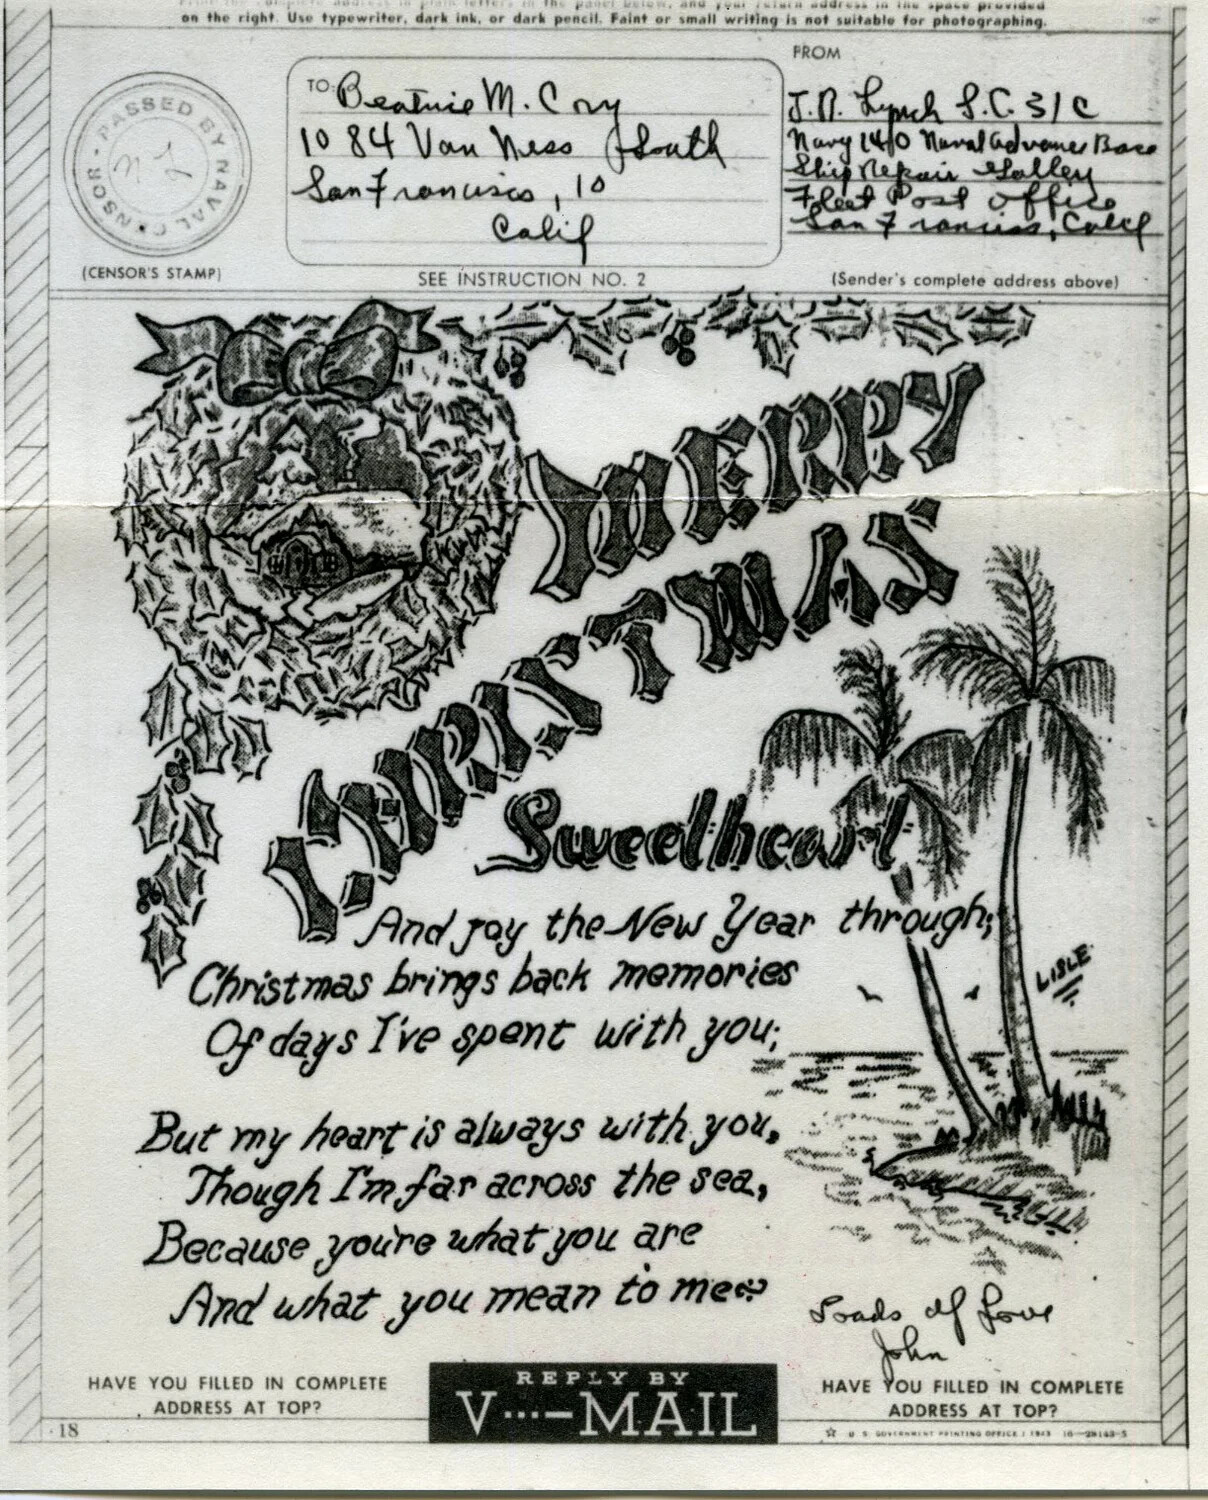 on the right. Use typewriter, dark ink, or dark pencil. Faint or small writing is not suitable for photographing.
PASSED BY NAVAL CENSOR
(CENSOR'S STAMP)
TO:
Beatrice M. Cory
1084 Van Ness South
San Francisco, 10
Calif
SEE INSTRUCTION NO. 2
FROM
J. R. Lynch S.C. 3/C
Navy 140 Naval Advance Base
Ship Repair Galley
Fleet Post Office
San Francisco, Calif
(Sender's complete address above)
MERRY
CHRISTMAS
Sweetheart
And joy the New Year through;
Christmas brings back memories
Of days I've spent with you;
But my heart is always with you,
Though I'm far across the sea,
Because you're what you are
And what you mean to me
LISLE
Loads of Love
John
HAVE YOU FILLED IN COMPLETE
ADDRESS AT TOP?
REPLY BY
V···—MAIL
HAVE YOU FILLED IN COMPLETE
ADDRESS AT TOP?
18
☆ U. S. GOVERNMENT PRINTING OFFICE : 1943 16—28143-5